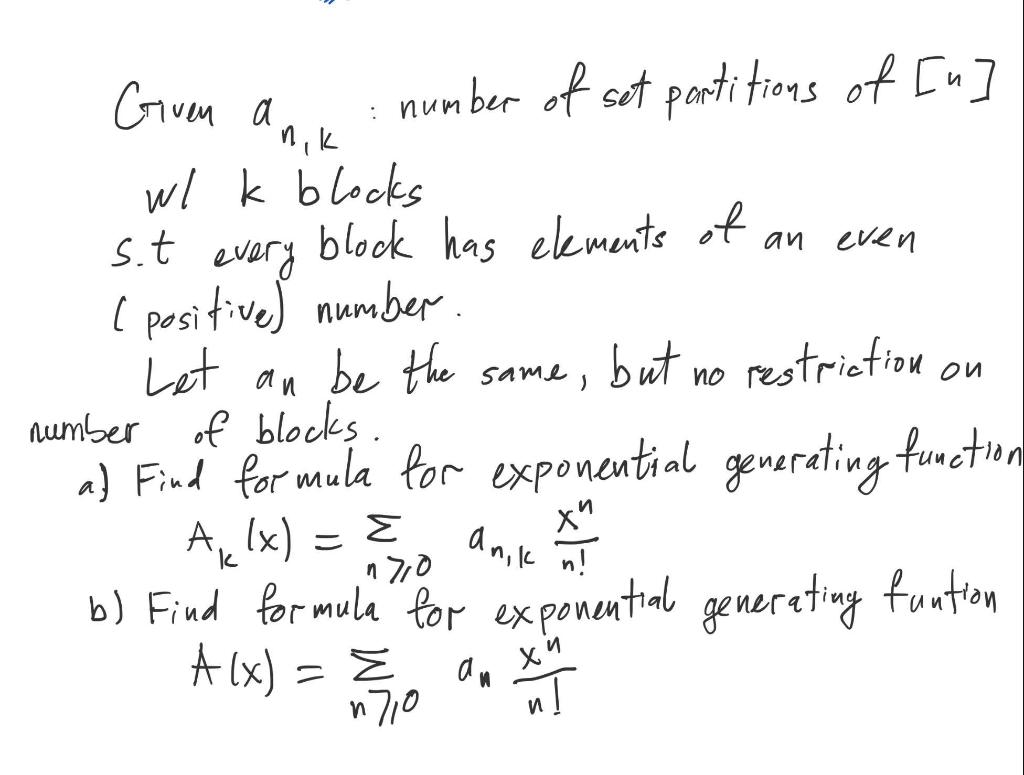 Given a_{n,k} : number of set partitions of [n]
w/ k blocks
s.t every block has elements of an even
(positive) number.
Let an be the same, but no restriction on
number of blocks.
a) Find formula for exponential generating function
A_k(x) = Σ_{n≥0} a_{n,k} x^n/n!
b) Find formula for exponential generating funtion
A(x) = Σ_{n≥0} a_n x^n/n!